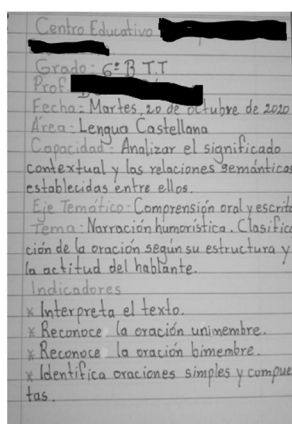 Centro Educativo
Grado: 6º B T.T
Prof.
Fecha: Martes, 20 de octubre de 2020
Área: Lengua Castellana
Capacidad: Analizar el significado
contextual y las relaciones semánticas
establecidas entre ellos.
Eje Temático: Comprensión oral y escrita
Tema: Narración humorística. Clasifica
ción de la oración según su estructura y
la actitud del hablante.
Indicadores
x Interpreta el texto.
x Reconoce la oración unimembre.
x Reconoce la oración bimembre.
x Identifica oraciones simples y compues
tas.